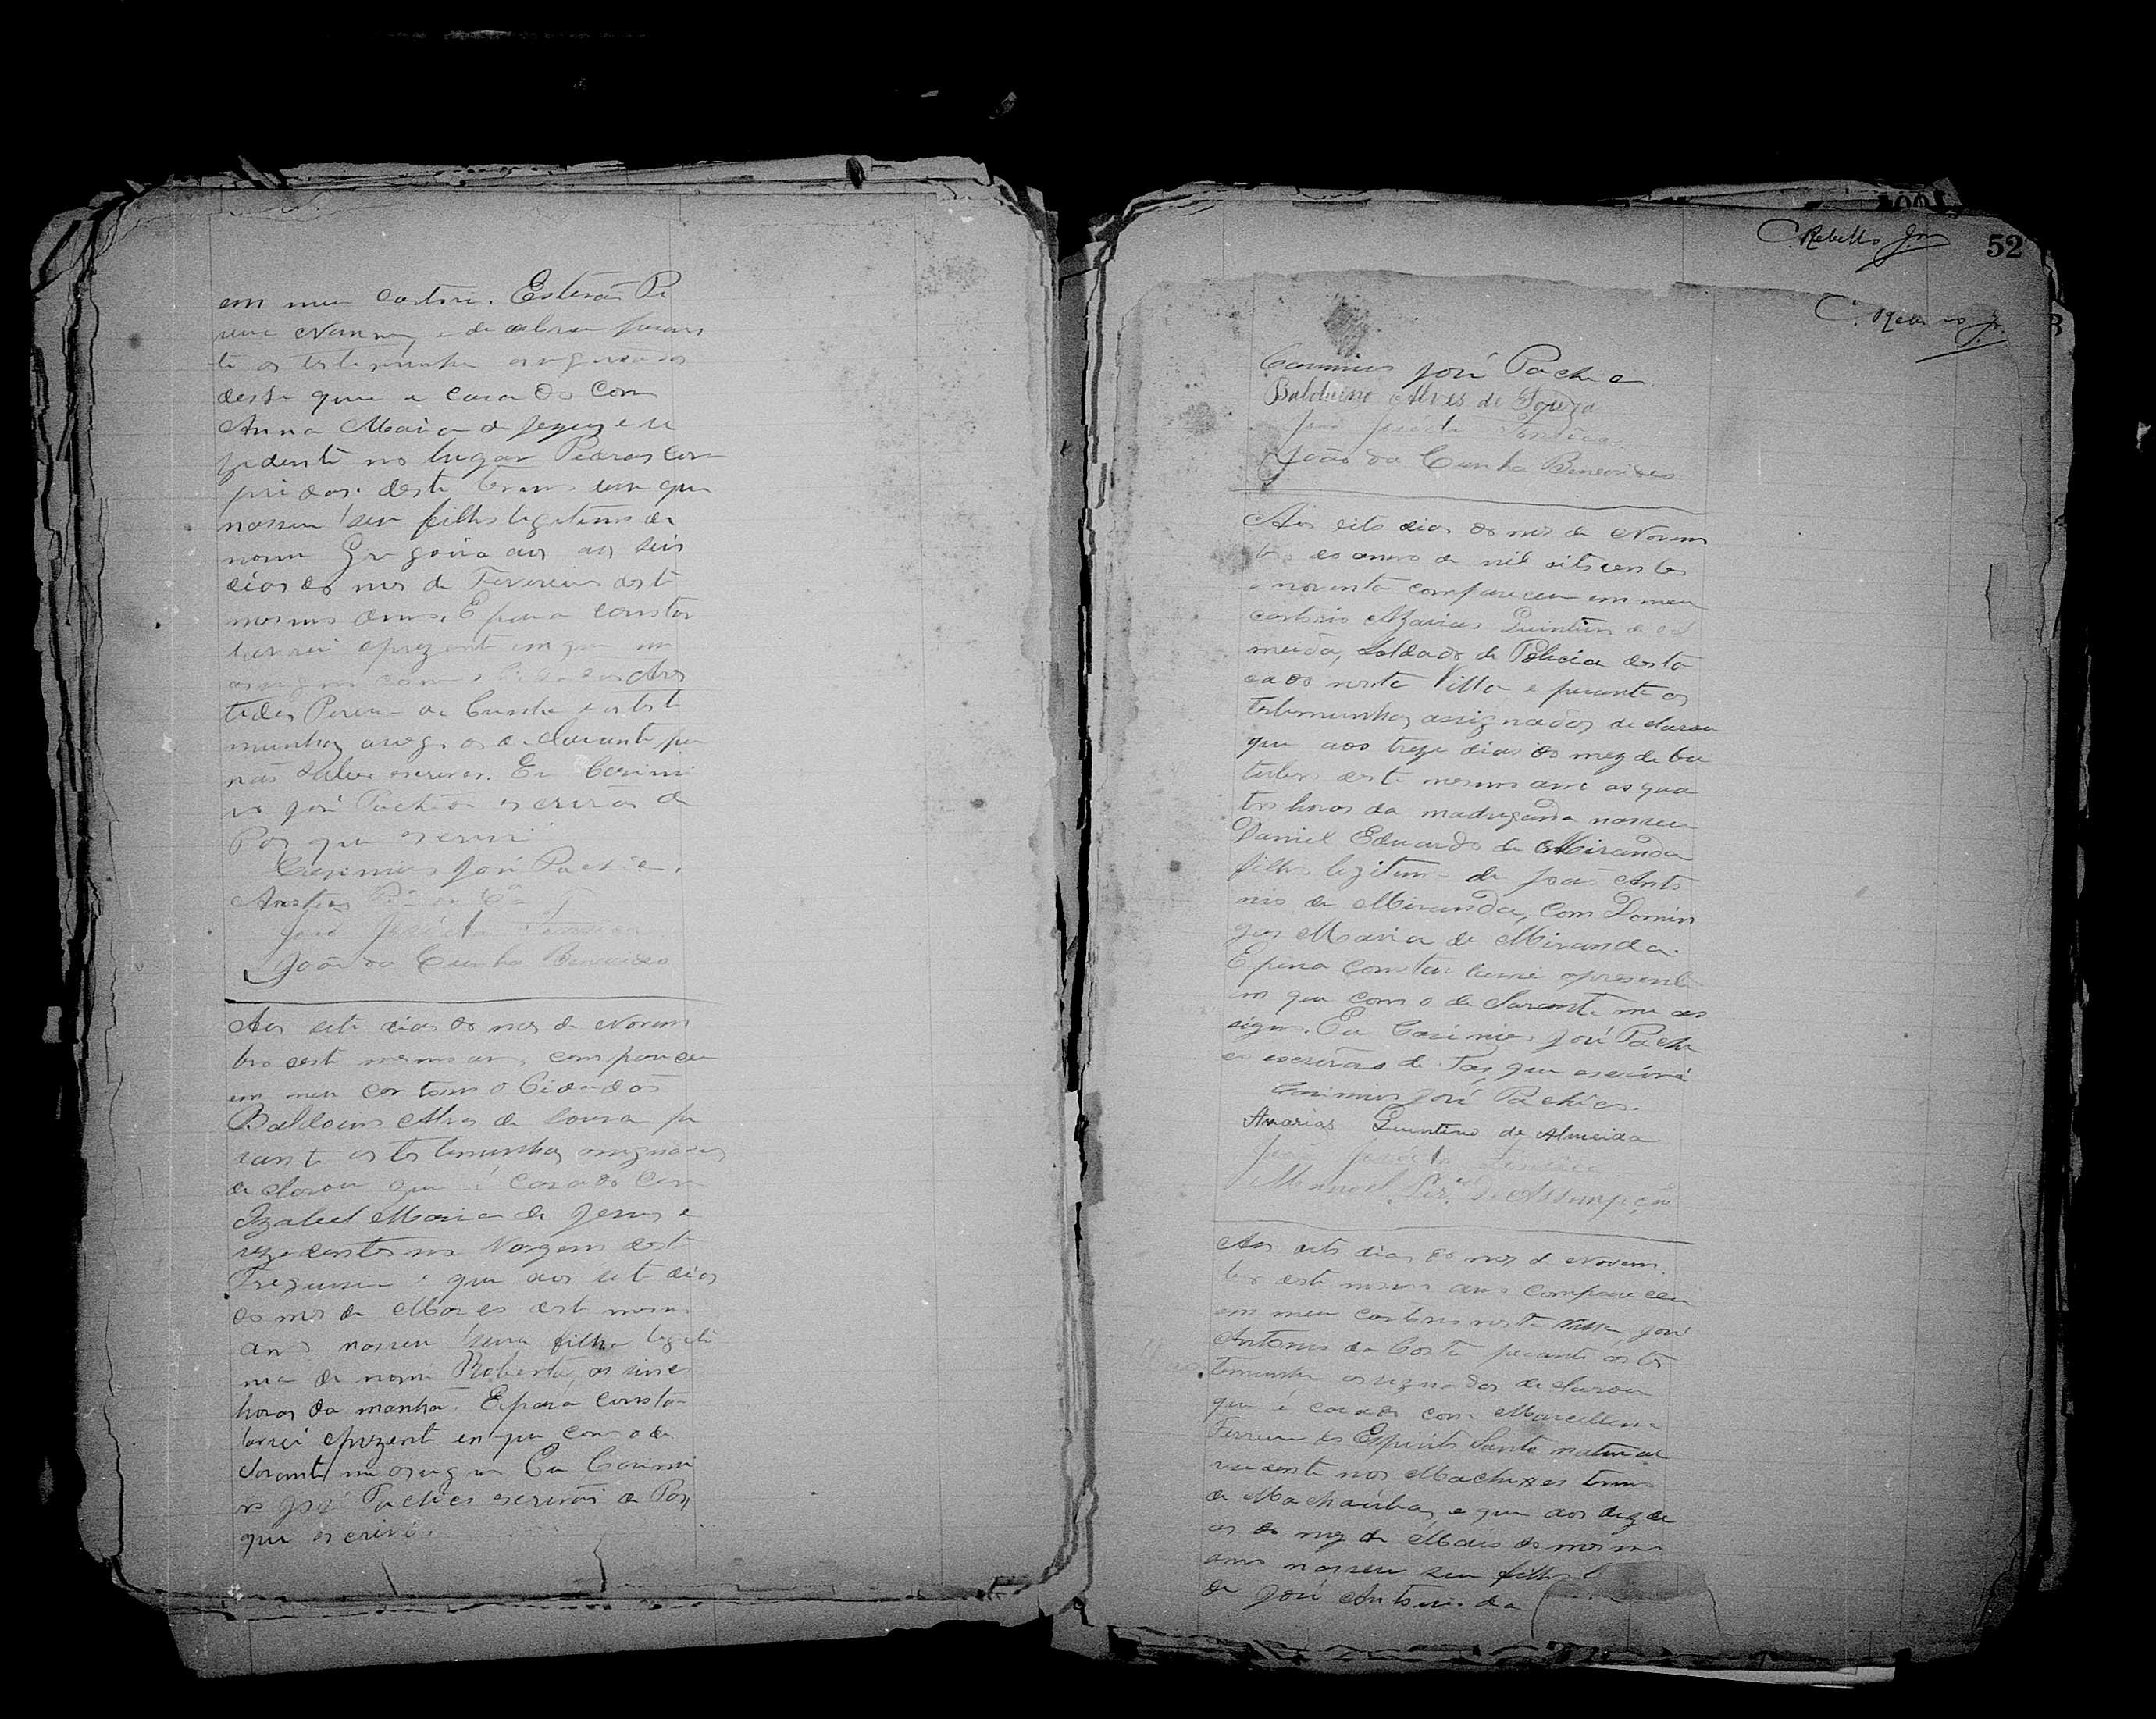 em meu cartorio. Estevão Pe
te as testemunhas assignadas
desse que é casado com
Anna Maria de Jezus e re
zidente no lugar Pedras com
pridas deste termo em que
nasseu seu filho legitimo de
nome Gregorio aos seis
dias do mes de Fevereiro deste
mesmo anno. E para constar
lavrei oprezente em que me
assigno com Aris
tides Pereira da Cunha e as teste
munhas a rogo do declarante por
não saber escrever. Eu Casimi
ro José Pachêco escrivão de
Paz que escrevi
Casimiro José Pachêco.
João da Cunha Benevides
Aos sete dias do mes de Novem
bro deste mesmo anno compareceu
em meu cartorio o Cidadão
Balduino Alves de Souza pe
rante as testemunhas assignadas
declarou que é casado com
Izabel Maria de Jesus e
rezidentes na Vargem desta
Freguesia e que aos sete dias
do mes de Março deste mesmo
anno nasseu sua filha legiti
ma de nome Roberta, as sinco
horas da manhã. E para consta
lavrei oprezente em que com o de
clarante me assigno Eu Casimi
ro José Pachêco escrivão de Paz
que escrevi.
C. Rebello Jor
52
C. Rebello Jr.
Casimiro José Pachêco
Balduino Alves de Souza
João da Cunha Benevides
Aos oito dias do mes de Novem
bro do anno de mil oitocentos
e noventa compareceu em meu
cartorio Azarias Quintino de Al
meida, soldado de Policia desta
cado nesta Villa e perante as
testemunhas assignadas declarou
que aos treze dias do mez de Ou
tubro deste mesmo anno as qua
tro horas da madrugada nasseu
Daniel Eduardo de Miranda
filho legitimo de João Anto
nio de Miranda, com Domin
gas Maria de Miranda.
E para constar lavrei opresente
em que com o declarante me as
signo. Eu Casimiro José Pache
co escrivão de Paz que escrevi
Casimiro José Pachêco.
Azarias Quintino de Almeida
Manoel Per.ª de Assumpção
Aos oito dias do mes de Novem
bro deste mesmo anno compareceu
em meu cartorio nesta Villa José
Antonio da Costa perante as tes
temunhas assignadas declarou
que é casado com Marcellina
Ferreira do Espirito Santo natural
rezidente nos Machados termo
de Macahubas, e que aos dez di
as do mez de Maio do mesmo
anno nasseu seu filho l
de José Antonio da